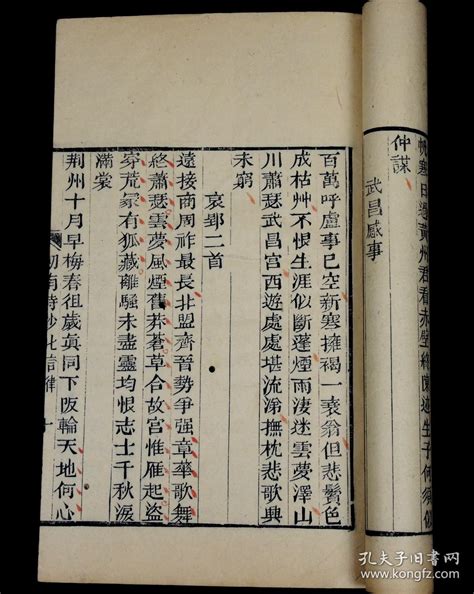 帆寒日過黃州君看赤壁終陳迹生子何須似
仲謀
武昌感事
百萬呼盧事已空新寒擁褐一衰翁但悲鬢色
成枯艸不恨生涯似斷蓬煙雨淒迷雲夢澤山
川蕭瑟武昌宫西遊處處堪流涕撫枕悲歌興
未窮
哀郢二首
遠接商周祚最長北盟齊晉勢爭强章華歌舞
終蕭瑟雲夢風煙舊莽蒼草合故宫惟雁起盜
穿荒冢有狐藏離騷未盡靈均恨志士千秋淚
滿裳
荆州十月早梅春徂歲眞同下阪輪天地何心
劒南詩鈔 七言律 十
孔夫子旧书网
www.kongfz.com